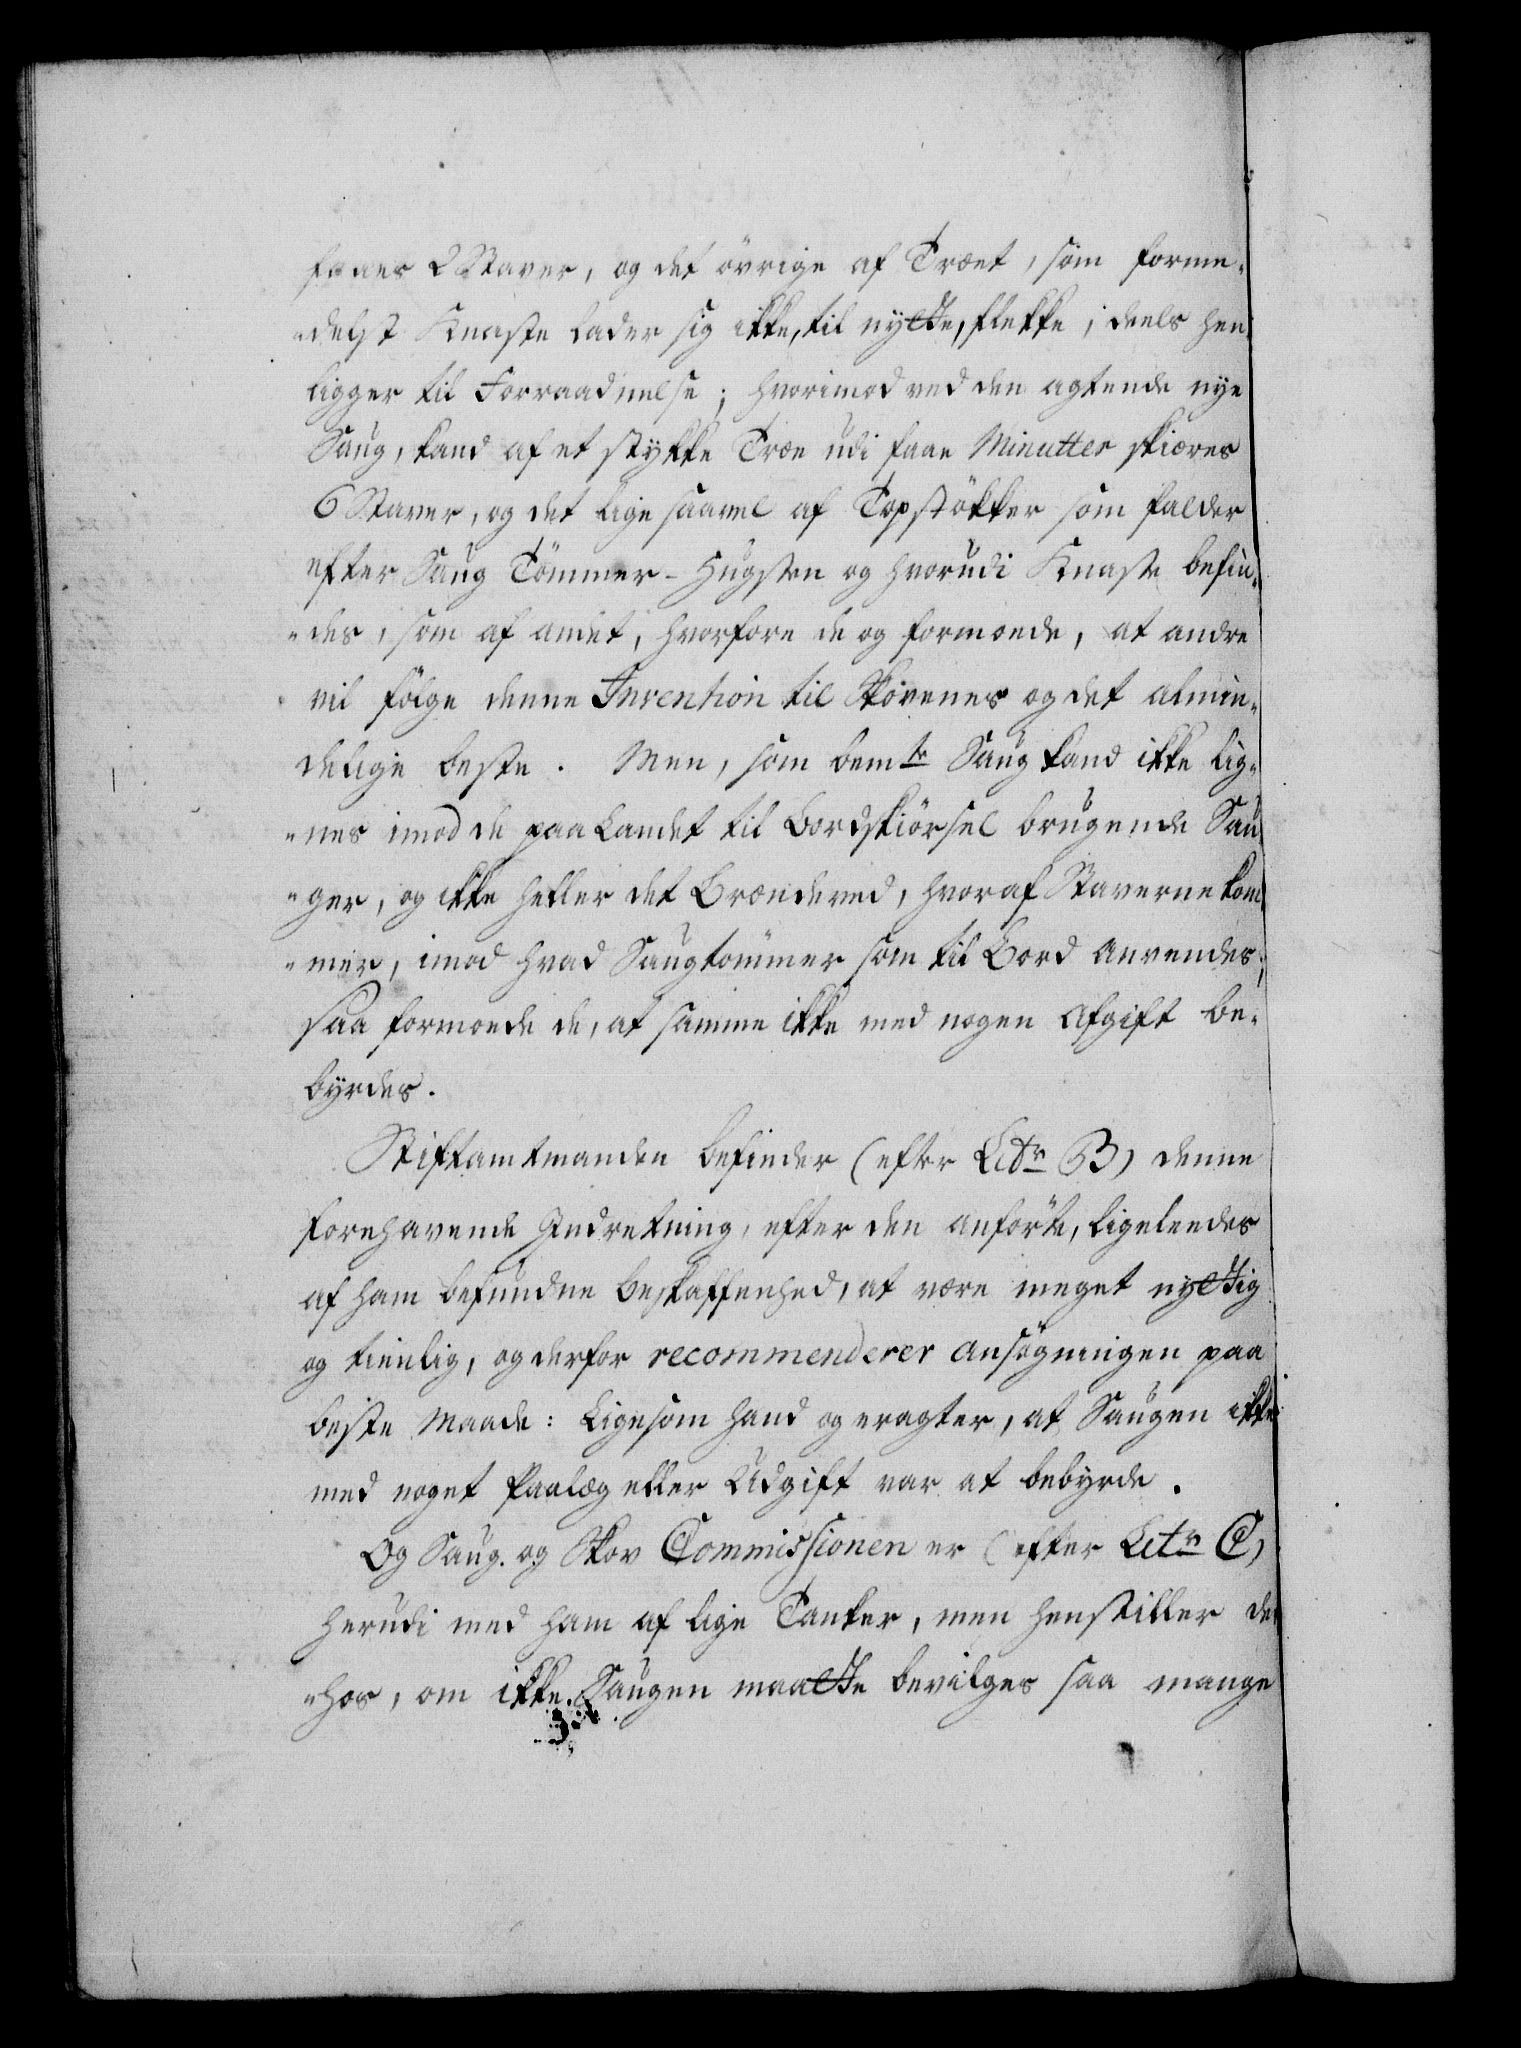 faaes 2 Staver, og det övrige af Træet, som forme-
"delst Knaste lader sig ikke, til nytte, flekke, deels hen-
ligger til Forraadnelse; hvorimod ved den agtende nye
Saug, kand af et stykke Træe udi faae Minutter skiæres
6 Staver, og det lige saavel af Topstökker som falder
efter Saug Tömmer-Hugsten og hvorudi Knaste befin-
"des, som af andet, hvorfore de og formoede, at andre
vil fölge denne Invention til Skovenes og det almin-
delige beste. Men, som bemte Saug kand ikke lig-
"nes imod de paa Landet til Bordskiörsel brugende Sau-
"ger, og ikke heller det Brændeved, hvoraf Staverne kom-
"mer, imod hvad Saugtömmer som til Bord anvendes;
saa formoede de, at samme ikke med nogen Afgift be-
byrdes.
Stiftamtmanden befinder (efter Litr B) denne
forehavende Indretning, efter den anförte, ligeleedes
af ham befundne beskaffenhed, at være meget nyttig
og tienlig, og derfor recommenderer ansögningen paa
beste Maade: Ligesom hand og eragter, at Saugen ikke
med noget Paalæg eller Udgift var at bebyrde.
Og Saug- og Skov Commissionen er (efter Litr C)
herudi med ham af lige Tanker, men henstiller der-
"hos, om ikke Saugen maatte bevilges saa mange